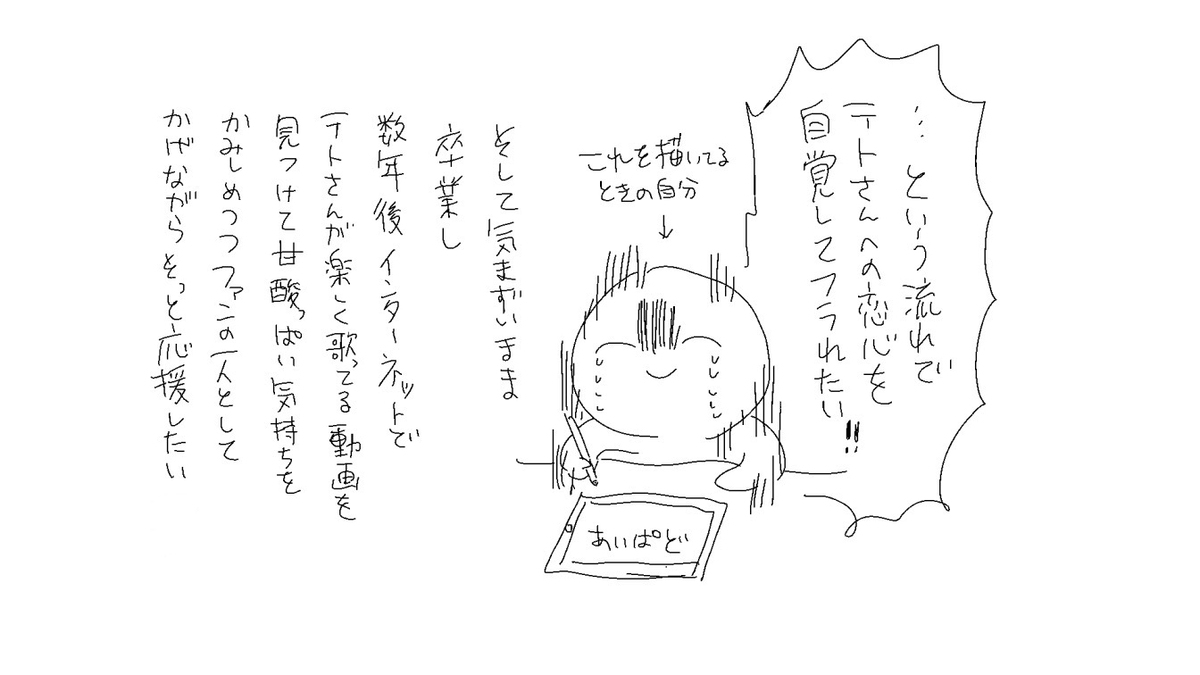 …という流れで
テトさんへの恋心を
自覚してフラれたい!!
これを描いてる
ときの自分
↓
そして気まずいまま
卒業し
数年後インターネットで
テトさんが楽しく歌ってる動画を
見つけて甘酸っぱい気持ちを
かみしめつつファンの一人として
かげながらそっと応援したい
あいぱど